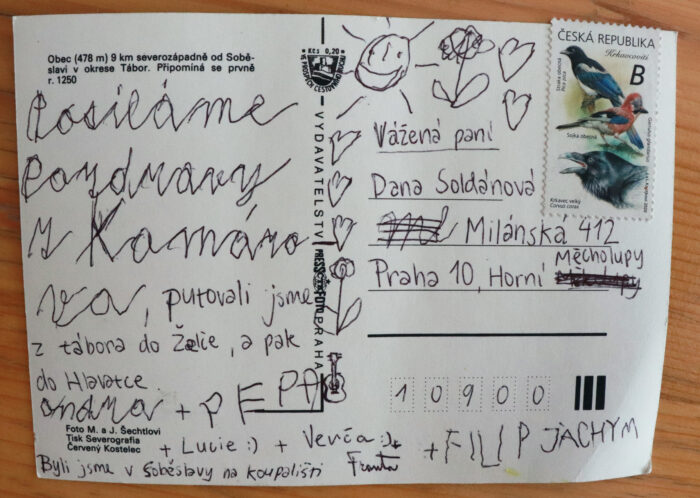 Obec (478 m) 9 km severozápadně od Sobě-
slaví v okrese Tábor. Připomíná se prvně
r. 1250
Posíláme
Pozdravy
z Komáro
va, putovali jsme
z tábora do Želče, a pak
do Hlavatce.
ondra + PEPA
Foto M. a J. Šechtlovi
Tisk Severografia
Červený Kostelec
+ Lucie :) + Verča :) +
Byli jsme v Soběslavy na koupališti Fronta
+ FILIP JACHYM
Kčs 0,20
VYDAVATELSTVÍ PRESSFOTO PRAHA
ČESKÁ REPUBLIKA
Krkavcovití
B
Straka obecná
Pica pica
Sojka obecná
Garrulus glandarius
Krkavec velký
Corvus corax
Vážená paní
Dana Soldánová
Milánská 412
Praha 10, Horní Měcholupy
10900